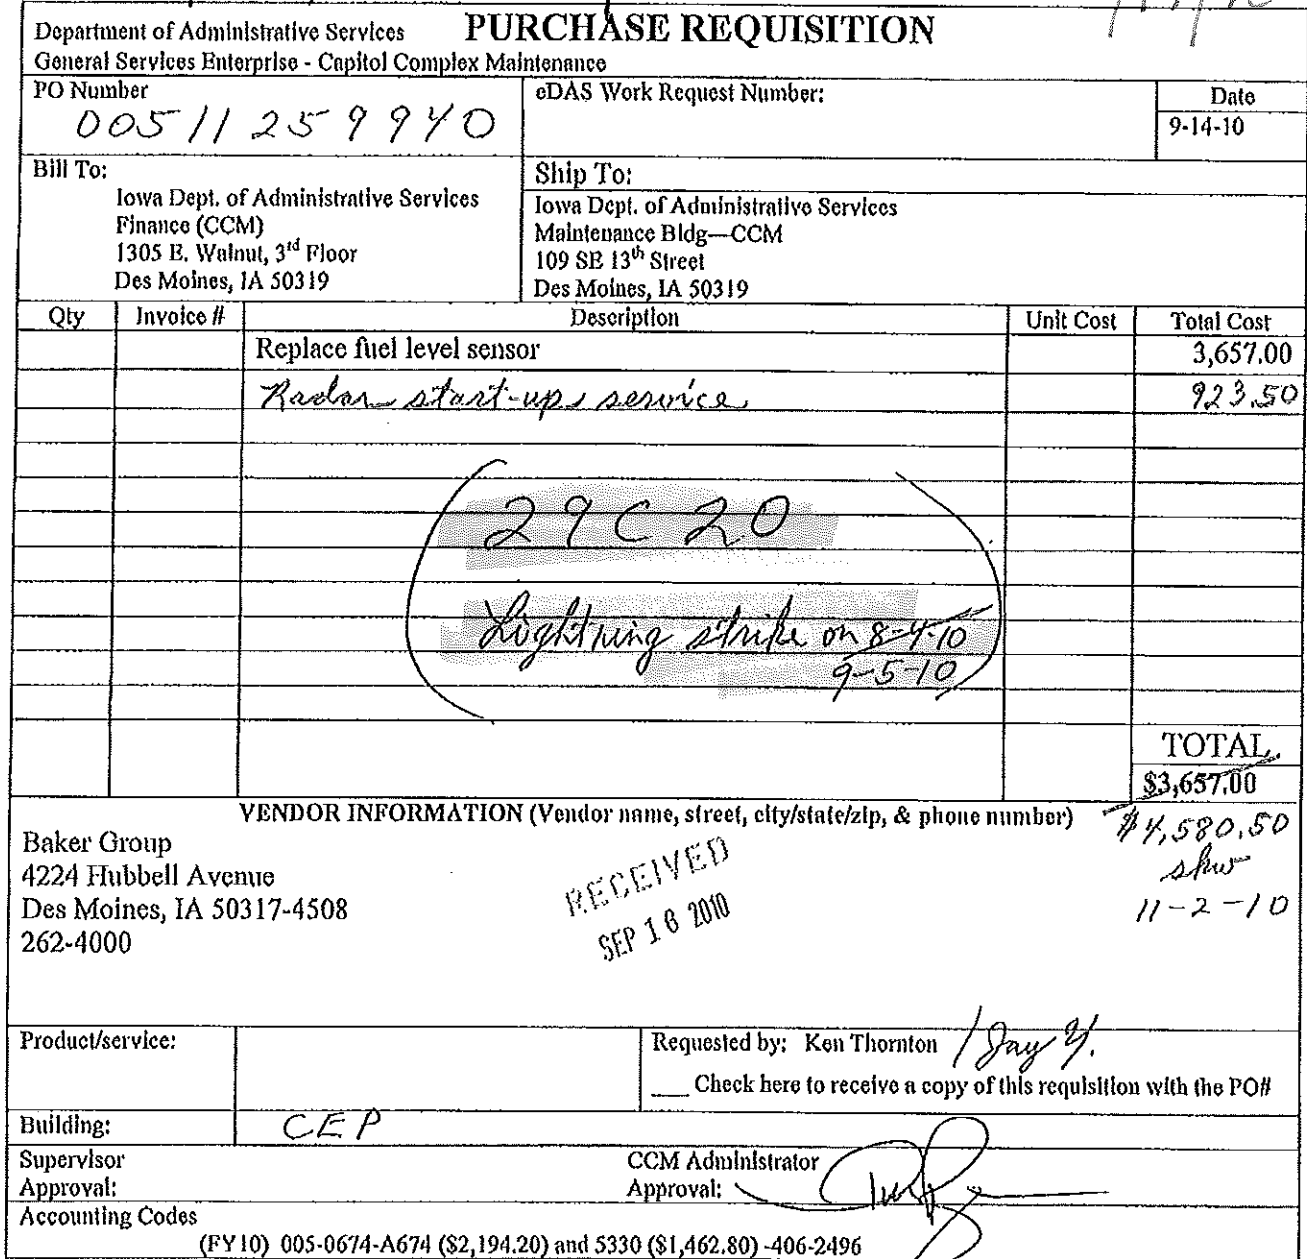 Department of Administrative Services PURCHASE REQUISITION
General Services Enterprise - Capitol Complex Maintenance
PO Number eDAS Work Request Number: Date
00511259940 9-14-10
Bill To: Ship To:
Iowa Dept. of Administrative Services
Finance (CCM)
1305 E. Walnut, 3rd Floor
Des Moines, IA 50319
Iowa Dept. of Administrative Services
Maintenance Bldg—CCM
109 SE 13th Street
Des Moines, IA 50319
Qty Invoice # Description Unit Cost Total Cost
Replace fuel level sensor 3,657.00
Radar start-up service 923.50
29C20
Lightning strike on 8-4-10
9-5-10
TOTAL
$3,657.00
VENDOR INFORMATION (Vendor name, street, city/state/zip, & phone number)
$4,580.50
skw
11-2-10
Baker Group
4224 Hubbell Avenue
Des Moines, IA 50317-4508
262-4000
RECEIVED
SEP 16 2010
Product/service: Requested by: Ken Thornton / Jay
___ Check here to receive a copy of this requisition with the PO#
Building: CEP
Supervisor CCM Administrator
Approval: Approval:
Accounting Codes
(FY10) 005-0674-A674 ($2,194.20) and 5330 ($1,462.80) -406-2496